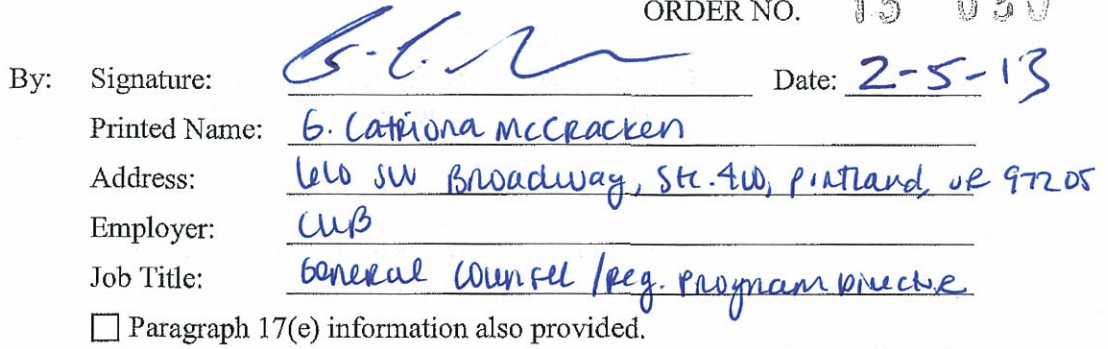 ORDER NO. 13 030
By: Signature: G. C. M Date: 2-5-13
Printed Name: G. Catriona McCracken
Address: 610 SW Broadway, Ste. 400, Portland, OR 97205
Employer: CUB
Job Title: General Counsel / Reg. Program Director
Paragraph 17(e) information also provided.